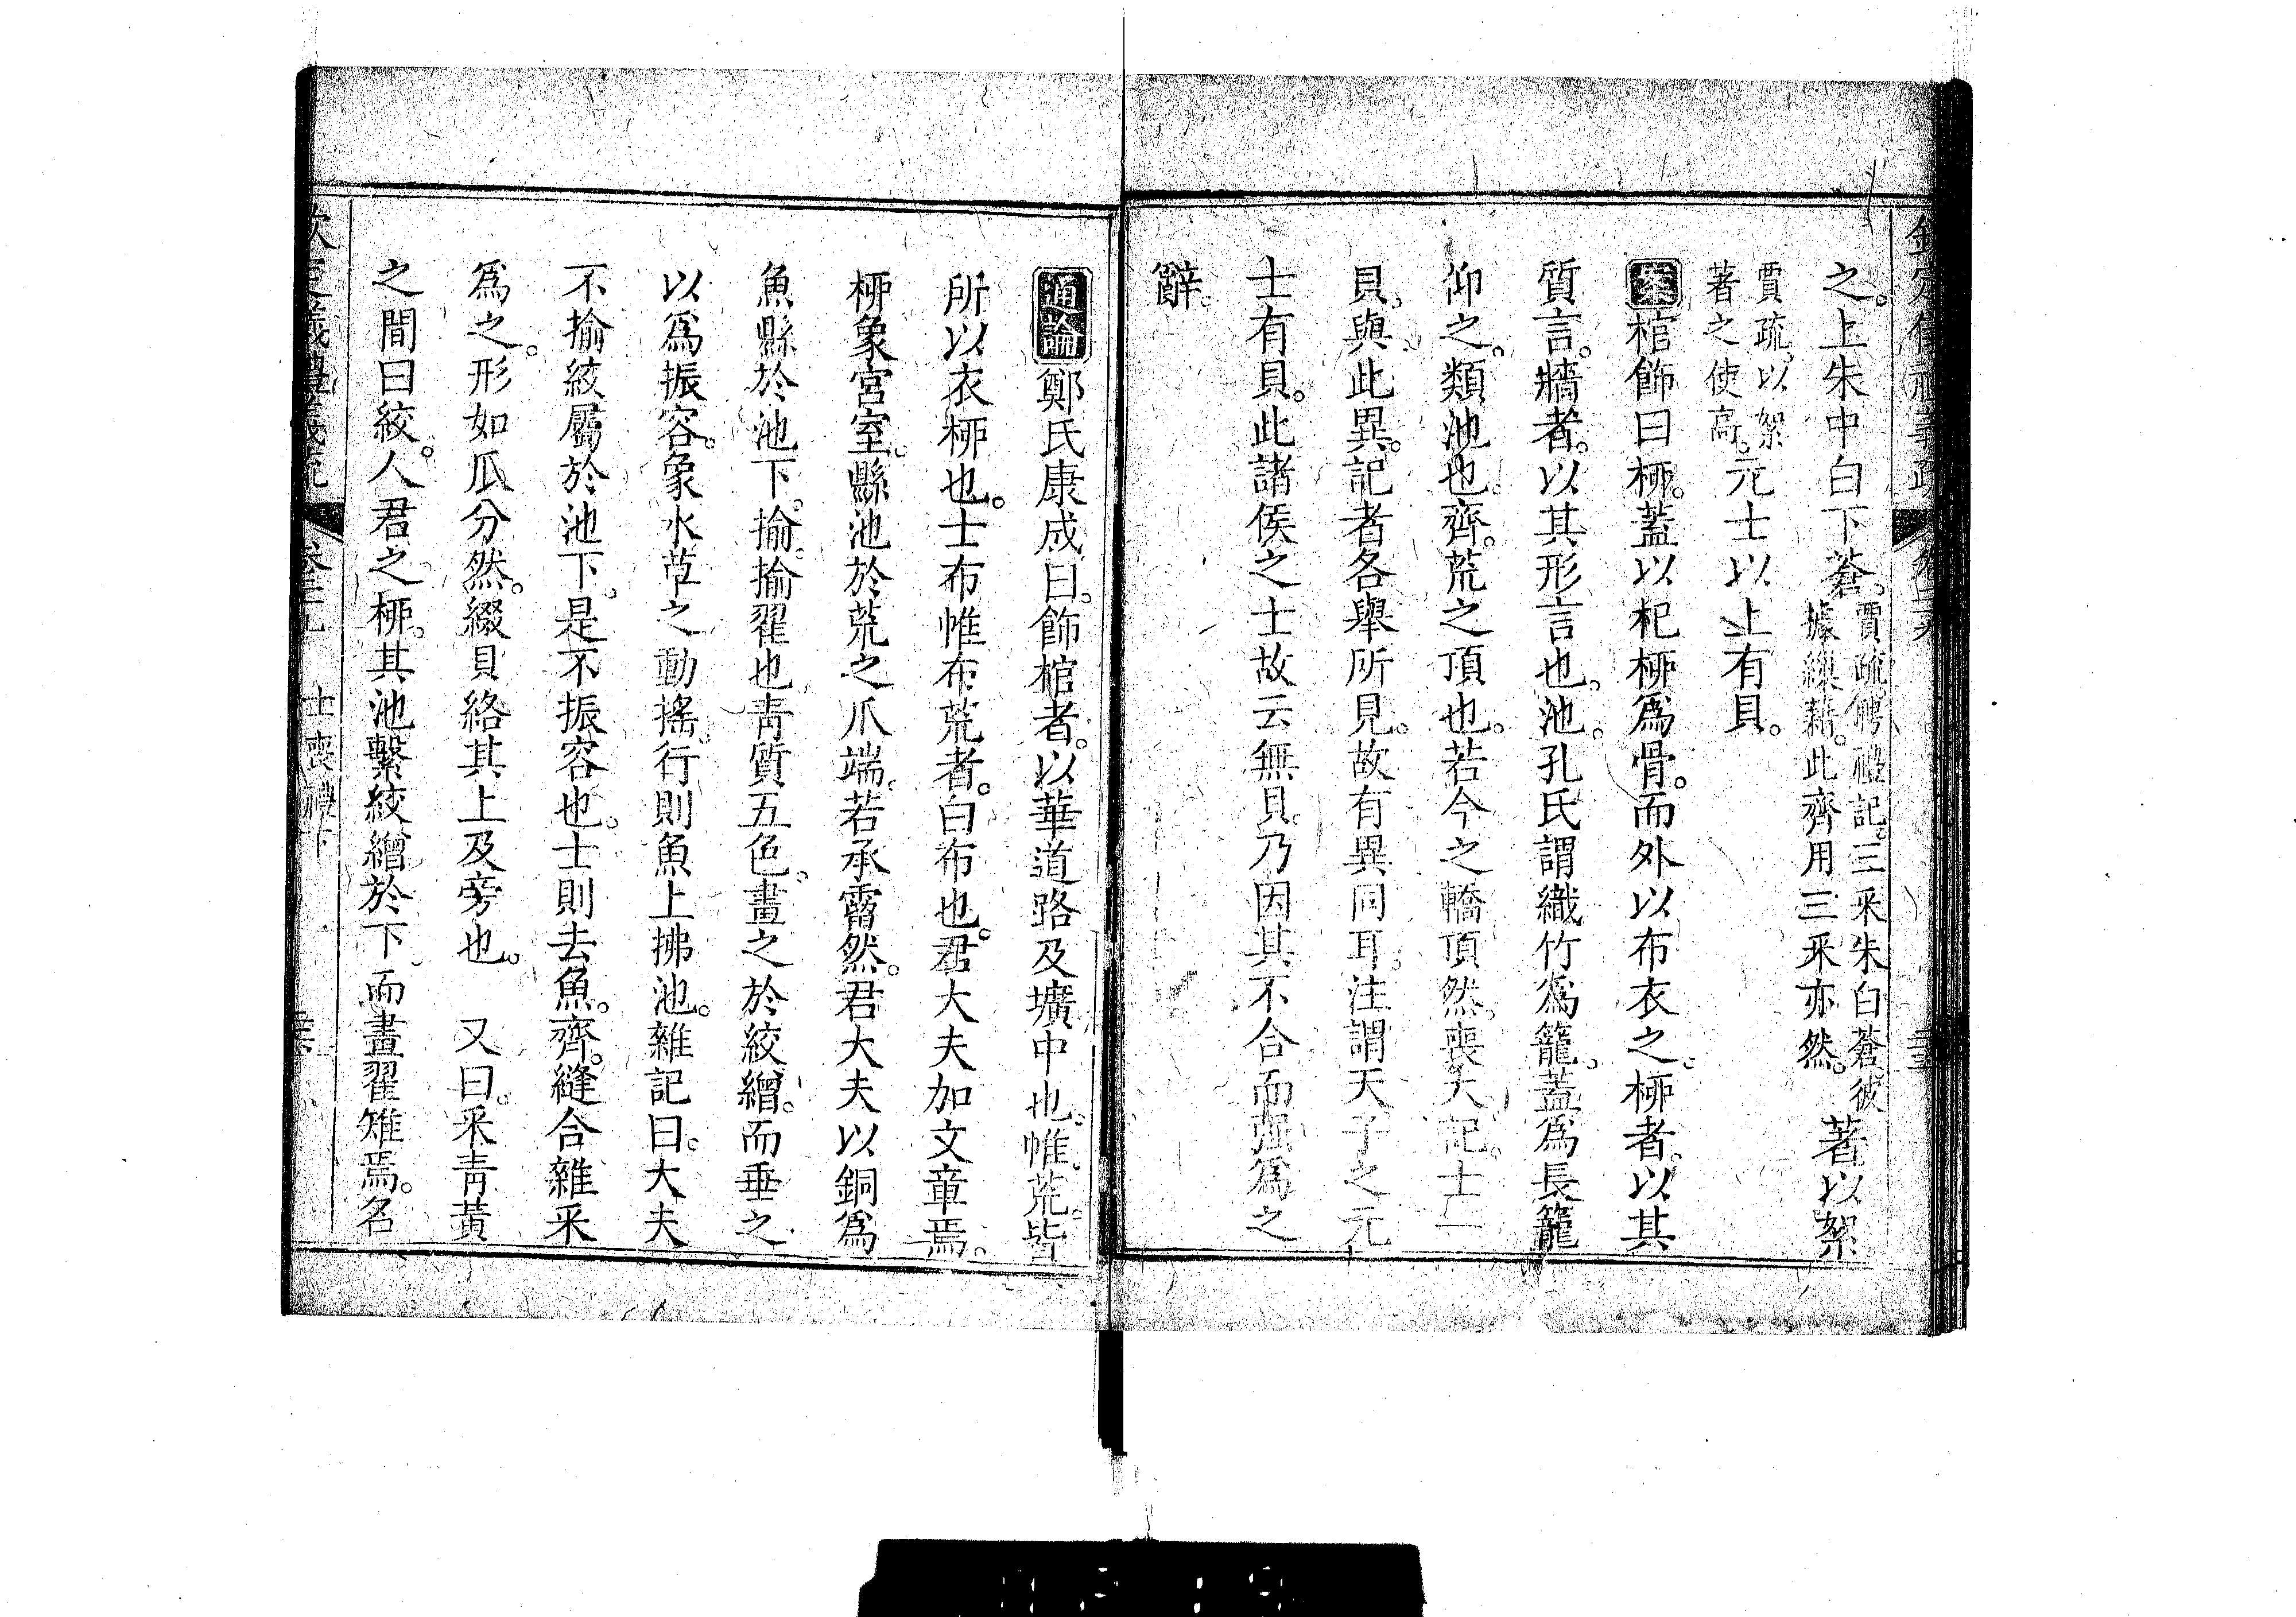 之。上朱中白下蒼。賈疏。聘禮記。三采朱白蒼。彼據繅藉。此齊用三采亦然。著以絮
賈疏。以絮著之使高。元士以上有貝。
案棺飾曰桺。蓋以杞桺爲骨。而外以布衣之。桺者。以其
質言。牆者。以其形言也。池。孔氏謂織竹爲籠。蓋爲長籠
仰之。類池也。齊。荒之頂也。若今之轎頂然。喪大記。士二
貝。與此異。記者各舉所見。故有異同耳。注謂天子之元
士有貝。此諸侯之士故云無貝。乃因其不合而强爲之
辭。
通論鄭氏康成曰。飾棺者。以華道路及壙中也。帷荒。皆
所以衣桺也。士布帷布荒者。白布也。君大夫加文章焉。
桺象宮室。縣池於荒之爪端。若承霤然。君大夫以銅爲
魚縣於池下。揄。揄翟也青質五色。畫之於絞繒。而垂之
以爲振容。象水草之動搖。行則魚上拂池。雜記曰。大夫
不揄絞屬於池下。是不振容也。士則去魚。齊。縫合雜采
爲之。形如瓜分然。綴貝絡其上及旁也。　又曰。采青黃
之間曰絞。人君之桺。其池繫絞繒於下。而畫翟雉焉。名
士喪禮下